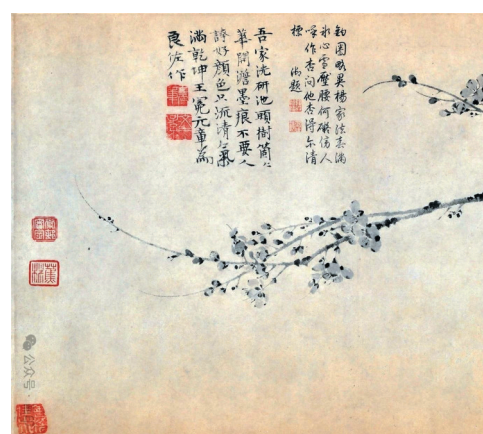 鈎圈畧異楊家法春滿
冰心雪壓腰何礙傍人
喚作杏問他杏得尔清
標 御題
吾家洗研池頭樹箇〻
華開澹墨痕不要人
誇好顏色只流清氣
滿乾坤王冕元章為
良佐作
公众号·